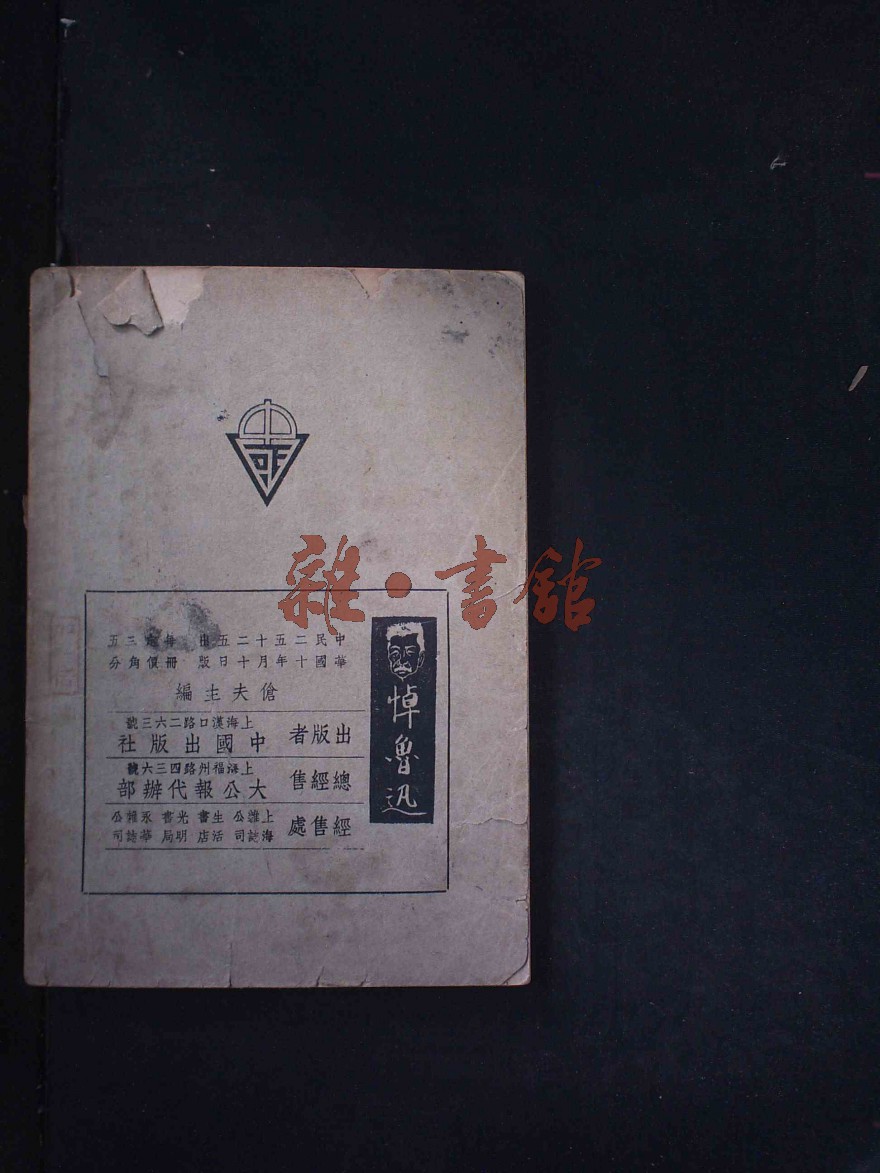 雜·書館
悼魯迅
中華民國二十五年十月二十五日出版 每冊定價三角五分
傖夫主編
出版者 上海漢口路二六三號
中國出版社
總經售 上海福州路四三六號
大公報代辦部
經售處 上海雜誌公司 生活書店 光明書局 永華雜誌公司